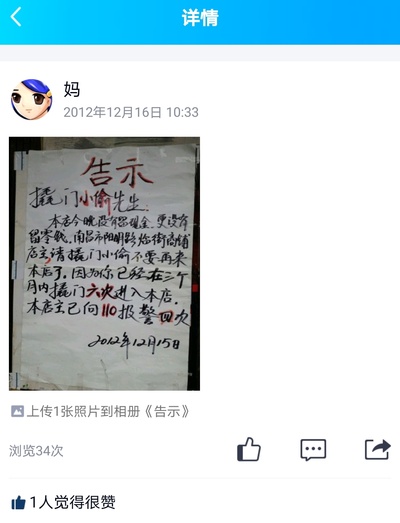 详情
妈
2012年12月16日 10:33
告示
撬门小偷先生:
本店今晚没有留现金,更没有
留零钱,南昌市阳明路沿街商铺
店主请撬门小偷不要再来
本店了,因为你已经在三个
月内撬门六次进入本店.
本店主已向110报警四次
2012年12月15日
上传1张照片到相册《告示》
浏览34次
1人觉得很赞